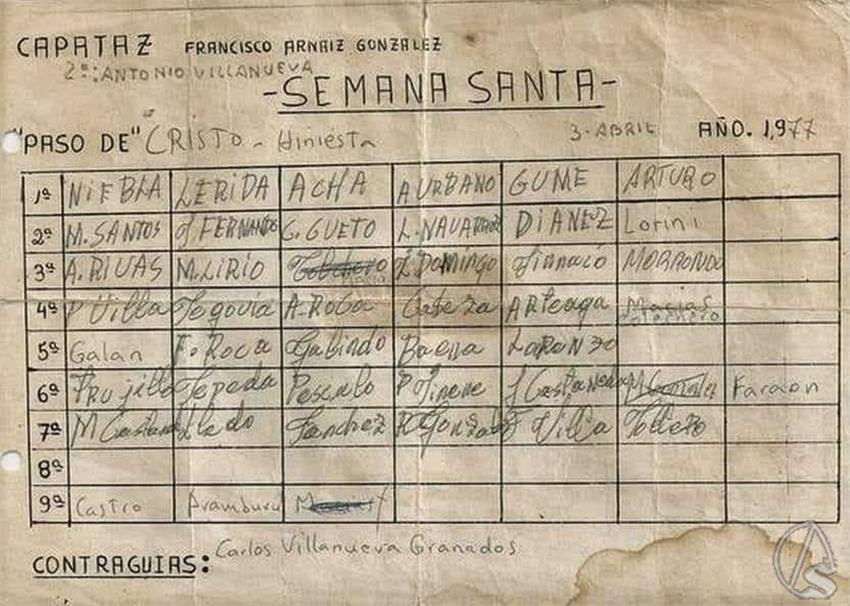 CAPATAZ FRANCISCO ARNAIZ GONZALEZ
2º: ANTONIO VILLANUEVA
-SEMANA SANTA-
"PASO DE" CRISTO - Hiniesta 3. ABRIL AÑO. 1,977
1ª NIEBLA LERIDA ACHA A URBANO GUME ARTURO
2ª M. SANTOS J. FERNANDO C. GUETO L. NAVARRO DIANEZ Lorini
3ª A. RIVAS M. LIRIO DOMINGO MORRONDO
4ª P Villa Segovia A. ROCA Cabeza ARteaga Macias
5ª Galan F. Roca Galindo Baena LORENZO
6ª Trujillo Sepeda P Jimene J Castaneda M Gonzalez Faraon
7ª M Castan Lledo Sanchez F Villa
8ª
9ª Castro Aramburu
CONTRAGUIAS: Carlos Villanueva Granados